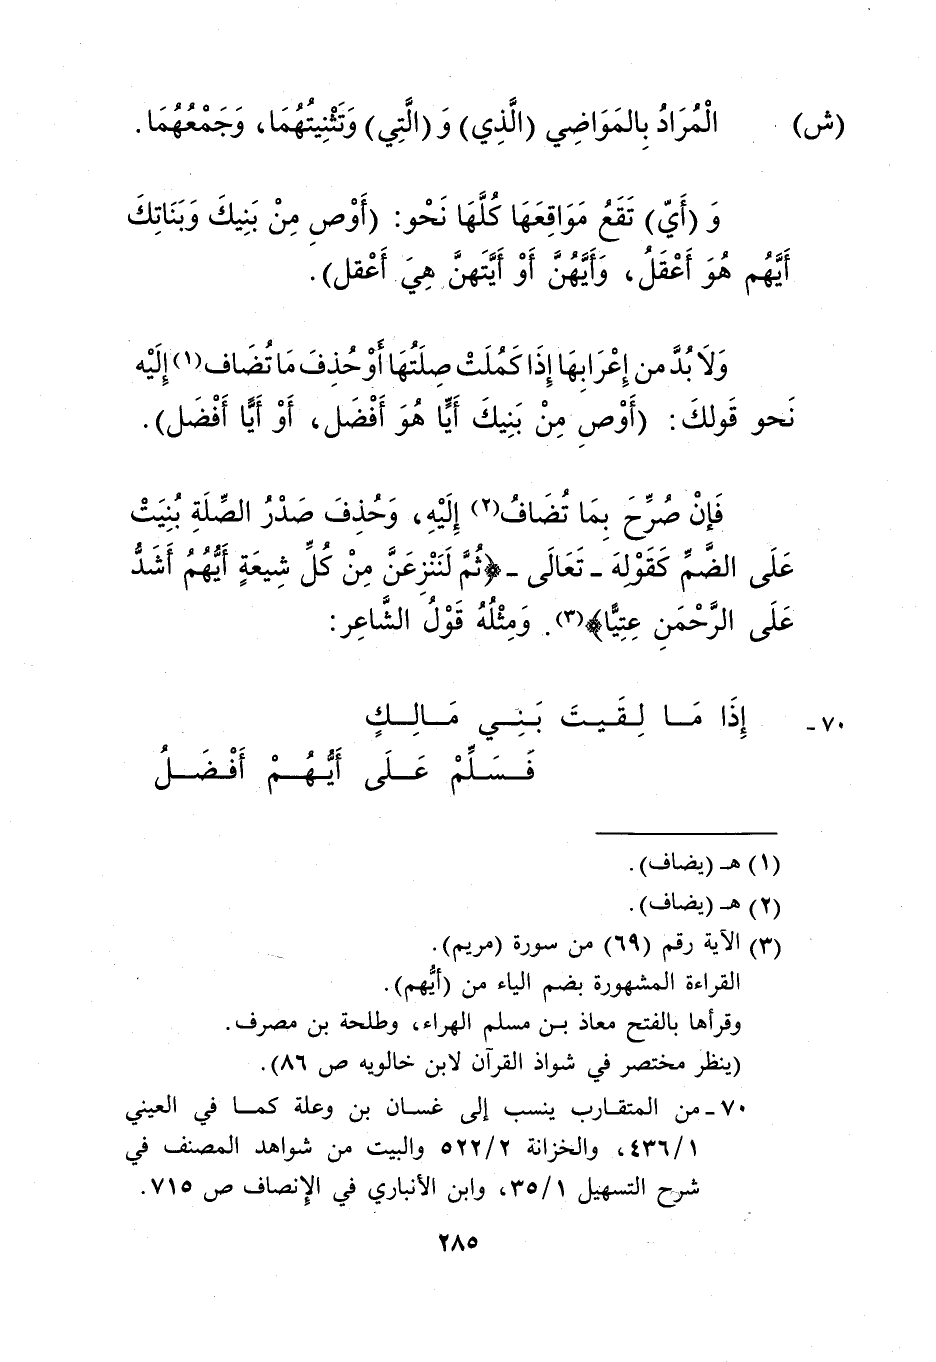 (ش) الْمُرَادُ بِالمَوَاضِي (الَّذِي) وَ (الَّتِي) وَتَثْنِيَتُهُمَا، وَجَمْعُهُمَا.
وَ (أَيّ) تَقَعُ مَوَاقِعَهَا كُلَّهَا نَحْو: (أَوْصِ مِنْ بَنِيكَ وَبَنَاتِكَ
أَيَّهُم هُوَ أَعْقَلُ، وَأَيَّهُنَّ أَوْ أَيَّتَهنَّ هِيَ أَعْقل).
وَلَا بُدَّ من إِعْرَابِهَا إِذَا كَمُلَتْ صِلَتُهَا أَوْ حُذِفَ مَا تُضَاف(١) إِلَيْه
نَحو قَولكَ: (أَوْصِ مِنْ بَنِيكَ أَيًّا هُوَ أَفْضَل، أَوْ أَيًّا أَفْضَل).
فَإِنْ صُرِّحَ بِمَا تُضَافُ(٢) إِلَيْهِ، وَحُذِفَ صَدْرُ الصِّلَةِ بُنِيَتْ
عَلَى الضَّمِّ كَقَوْلِهِ ـ تَعَالَى ـ ﴿ثُمَّ لَنَنْزِعَنَّ مِنْ كُلِّ شِيعَةٍ أَيُّهُمُ أَشَدُّ
عَلَى الرَّحْمَنِ عِتِيًّا﴾(٣). وَمِثْلُهُ قَوْلُ الشَّاعِر:
٧٠ـ إِذَا مَـا لِـقَـيـتَ بَـنِـي مَـالِـكٍ
فَـسَـلِّمْ عَـلَى أَيُّـهُـمْ أَفْـضَـلُ
(١) هـ (يضاف).
(٢) هـ (يضاف).
(٣) الآية رقم (٦٩) من سورة (مريم).
القراءة المشهورة بضم الياء من (أيُّهم).
وقرأها بالفتح معاذ بـن مسلم الهراء، وطلحة بن مصرف.
(ينظر مختصر في شواذ القرآن لابن خالويه ص ٨٦).
٧٠ـ من المتقـارب ينسب إلى غسـان بن وعلة كمـا في العيني
٤٣٦/١، والخزانة ٥٢٢/٢ والبيت من شواهد المصنف في
شرح التسهيل ٣٥/١، وابن الأنباري في الإنصاف ص ٧١٥.
٢٨٥